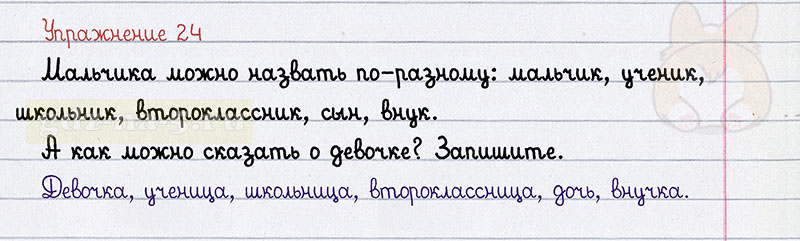 Упражнение 24
Мальчика можно назвать по-разному: мальчик, ученик,
школьник, второклассник, сын, внук.
А как можно сказать о девочке? Запишите.
Девочка, ученица, школьница, второклассница, дочь, внучка.